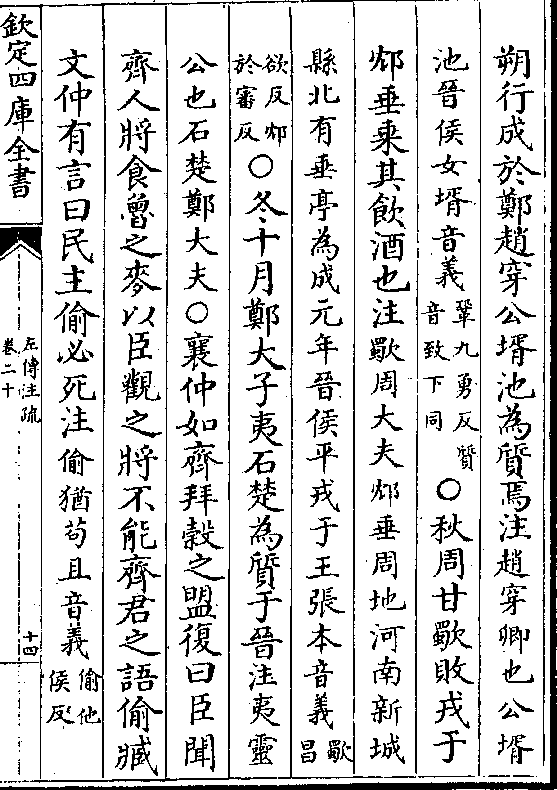 朔行成於鄭趙穿公壻池為質焉注趙穿卿也公壻
池晉侯女壻音義鞏九勇反質音致下同○秋周甘歜敗戎于
邥垂乘其飲酒也注歜周大夫邥垂周地河南新城
縣北有垂亭為成元年晉侯平戎于王張本音義歜昌
欲反邥於審反○冬十月鄭大子夷石楚為質于晉注夷靈
公也石楚鄭大夫○襄仲如齊拜穀之盟復曰臣聞
齊人將食魯之麥以臣觀之將不能齊君之語偷臧
文仲有言曰民主偷必死注偷猶苟且音義偷他侯反
欽定四庫全書
左傳注疏
卷二十
十四